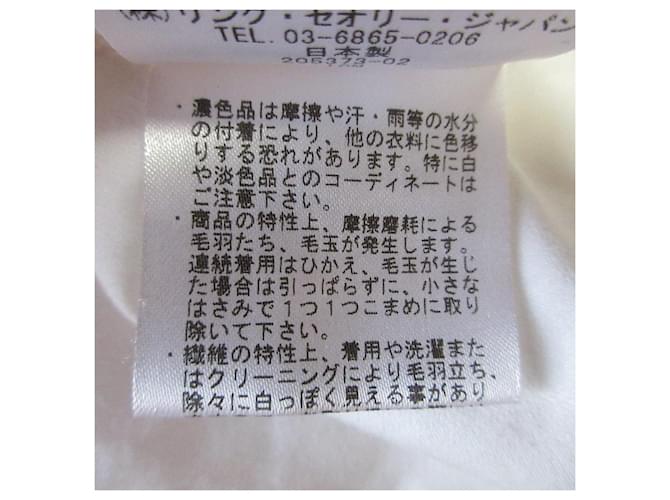 (株)リンク・セオリー・ジャパン
TEL. 03-6865-0206
日本製
205373-02
・濃色品は摩擦や汗・雨等の水分
の付着により、他の衣料に色移
りする恐れがあります。特に白
や淡色品とのコーディネートは
ご注意下さい。
・商品の特性上、摩擦磨耗による
毛羽たち、毛玉が発生します。
連続着用はひかえ、毛玉が生じ
た場合は引っぱらずに、小さな
はさみで1つ1つこまめに取り
除いて下さい。
・繊維の特性上、着用や洗濯また
はクリーニングにより毛羽立ち、
除々に白っぽく見える事があり